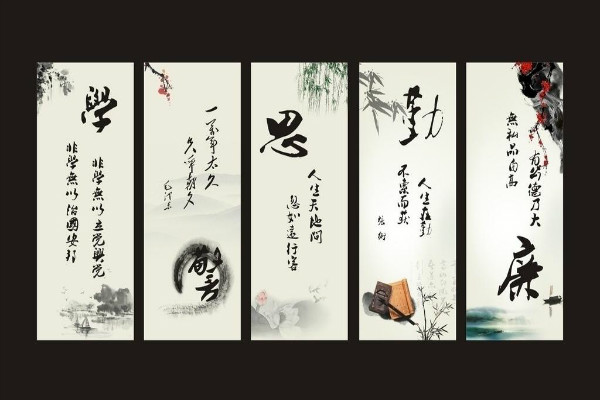 學
非學無以立党興党
非學無以治國安邦
一万年太久
思
人生天地間
忽如遠行客
勤
人生在勤
不索何获
张衡
有容德乃大
無私品自高
廉